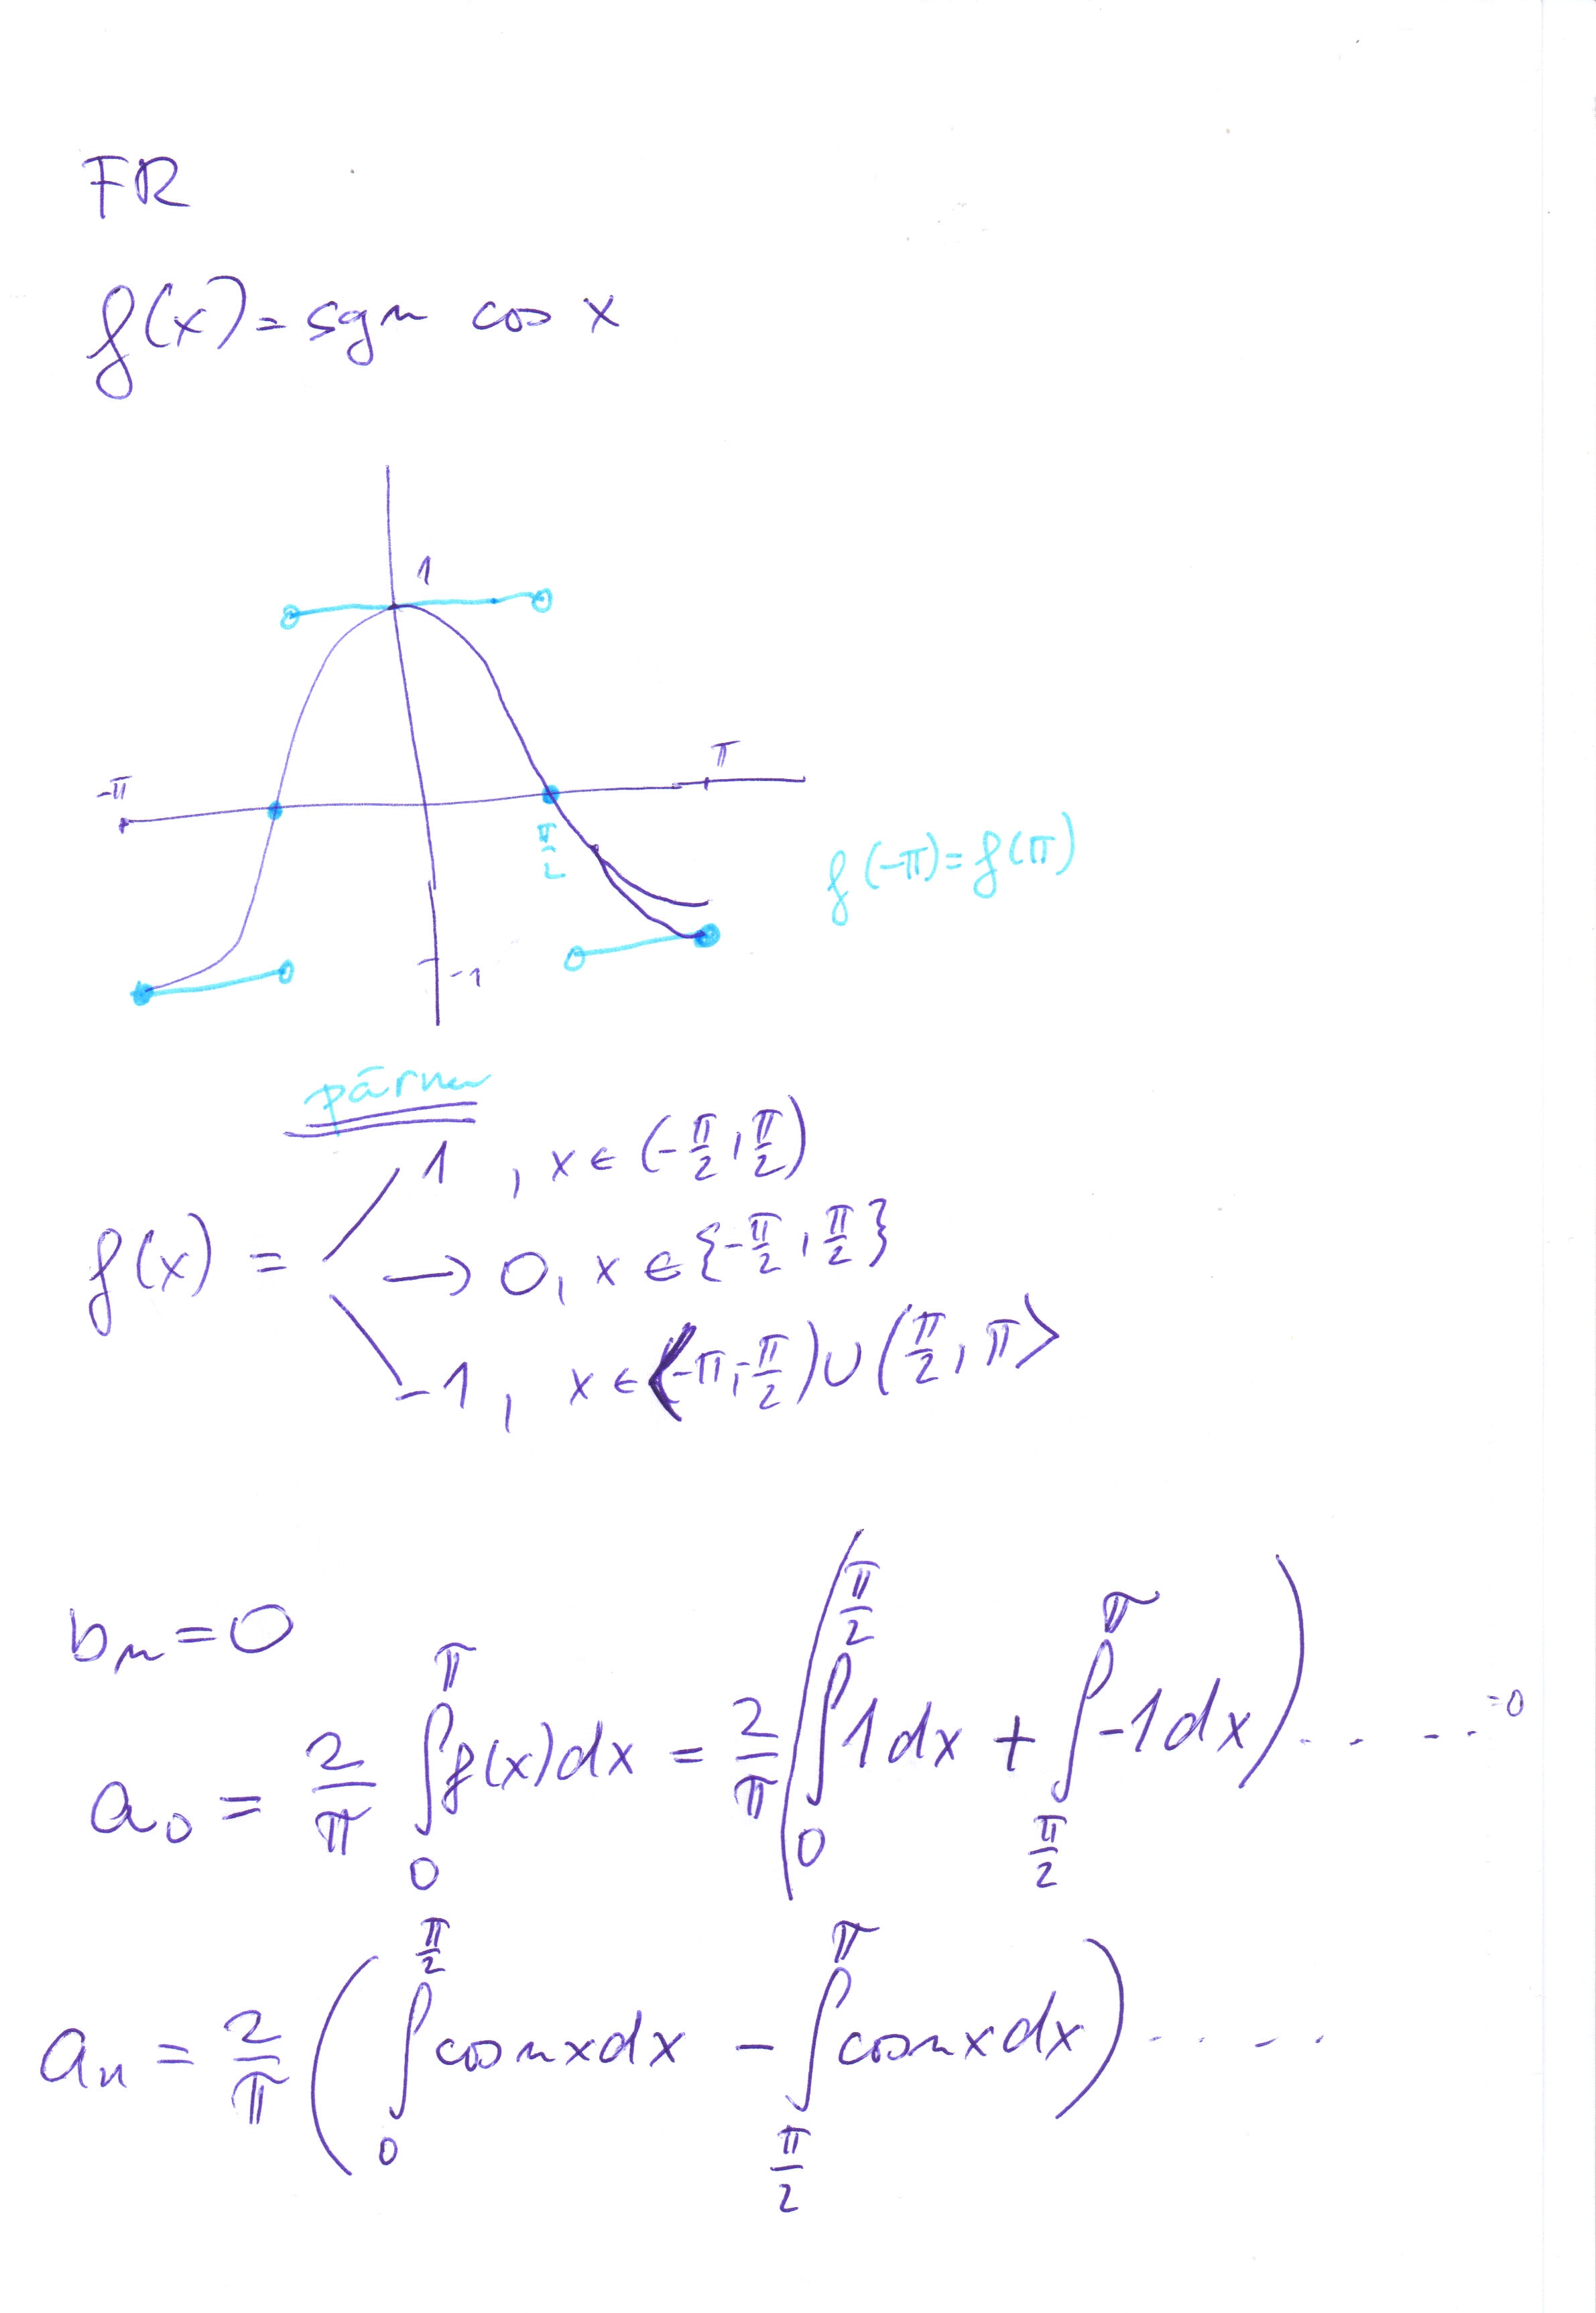 FR
f(x) = sgn cos x
1
-π
π
π/2
f(-π) = f(π)
-1
párna
1 , x ∈ (-π/2, π/2)
f(x) = → 0, x ∈ {-π/2, π/2}
-1, x ∈ ⟨-π, -π/2) ∪ (π/2, π⟩
bn = 0
a0 = 2/π ∫_0^π f(x)dx = 2/π ( ∫_0^{π/2} 1dx + ∫_{π/2}^π -1dx ) . . . . . =0
an = 2/π ( ∫_0^{π/2} cos nx dx - ∫_{π/2}^π cos nx dx ) . . . . .